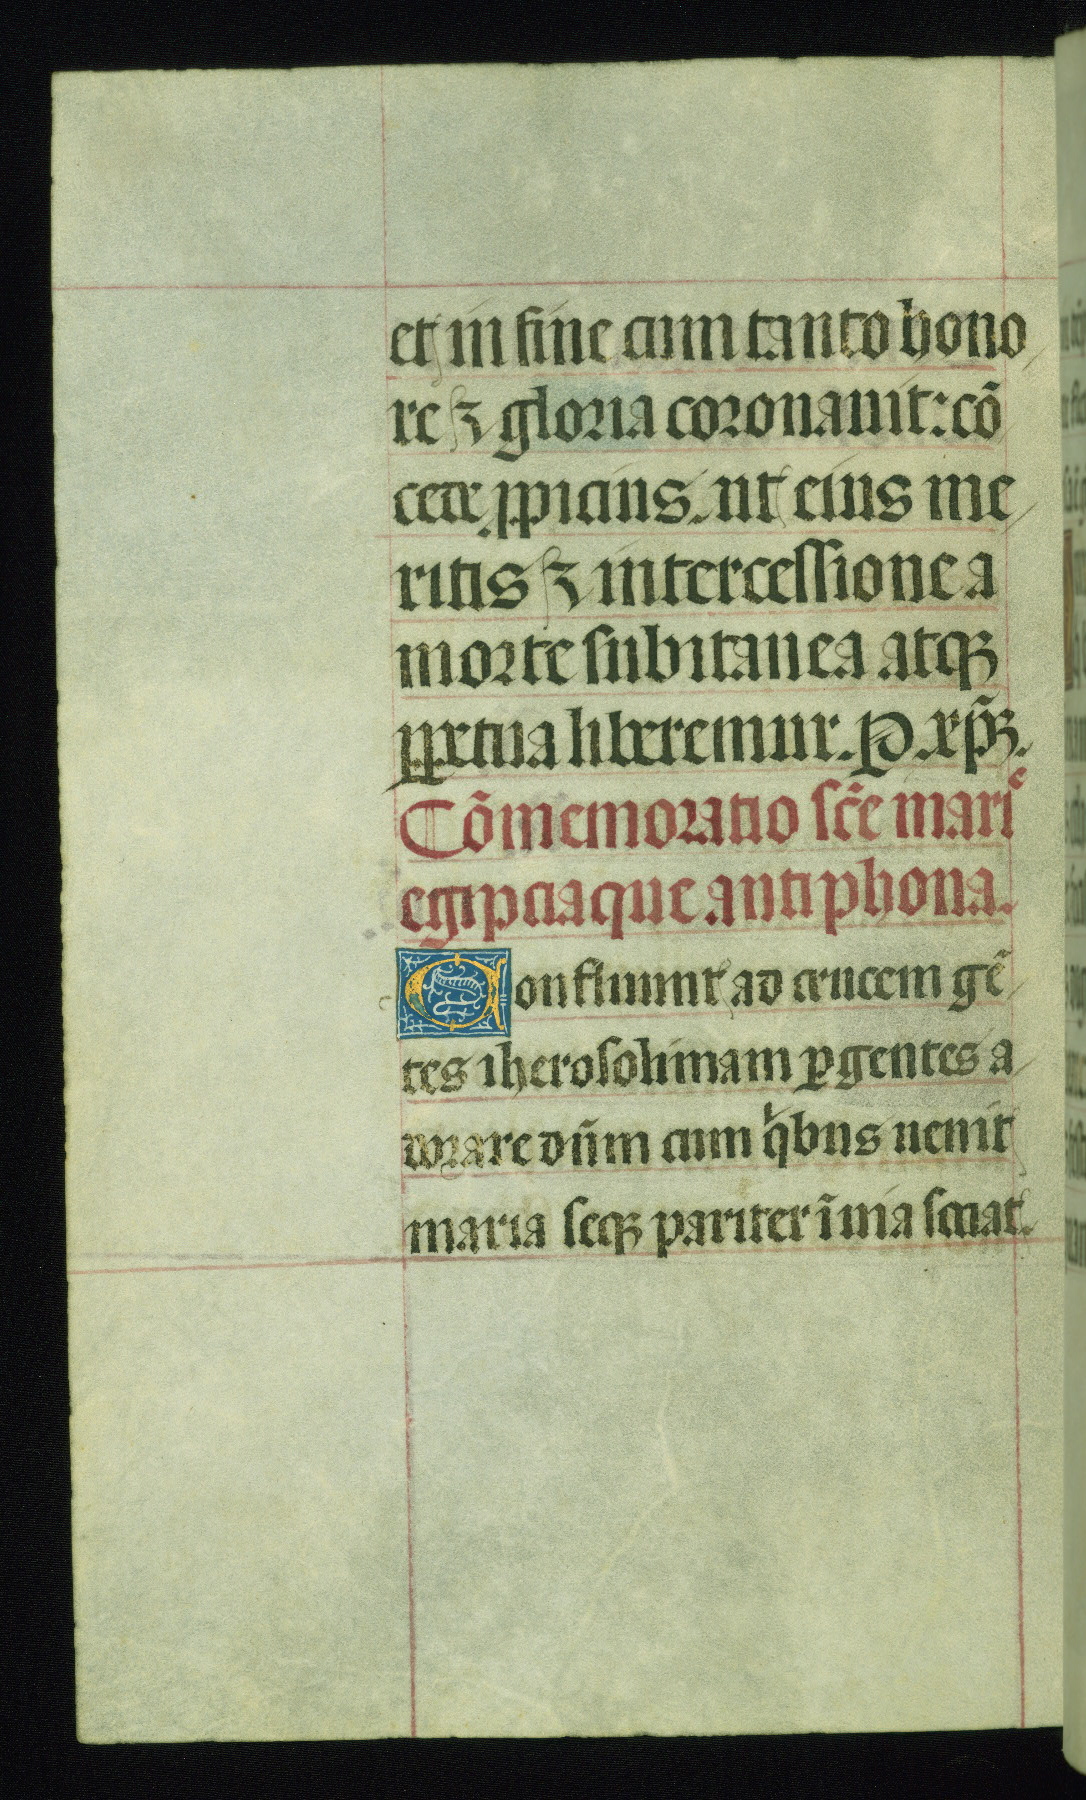 et in fine cum tanto hono
re ⁊ gloria coronauit: cō
cede ꝓpicius. ut eius me
ritis ⁊ intercessione a
morte subitanea atqꝫ
ꝑpetua liberemur. P. xp̄ꝫ.
Cōmemoratio sc̄e marie
egipciaque antiphona.
Confluunt ad crucem gē
tes iherosolimam ꝑgentes a
dorare dn̄m cum qͥbus uenit
maria seqꝫ pariter ī uia sociat.